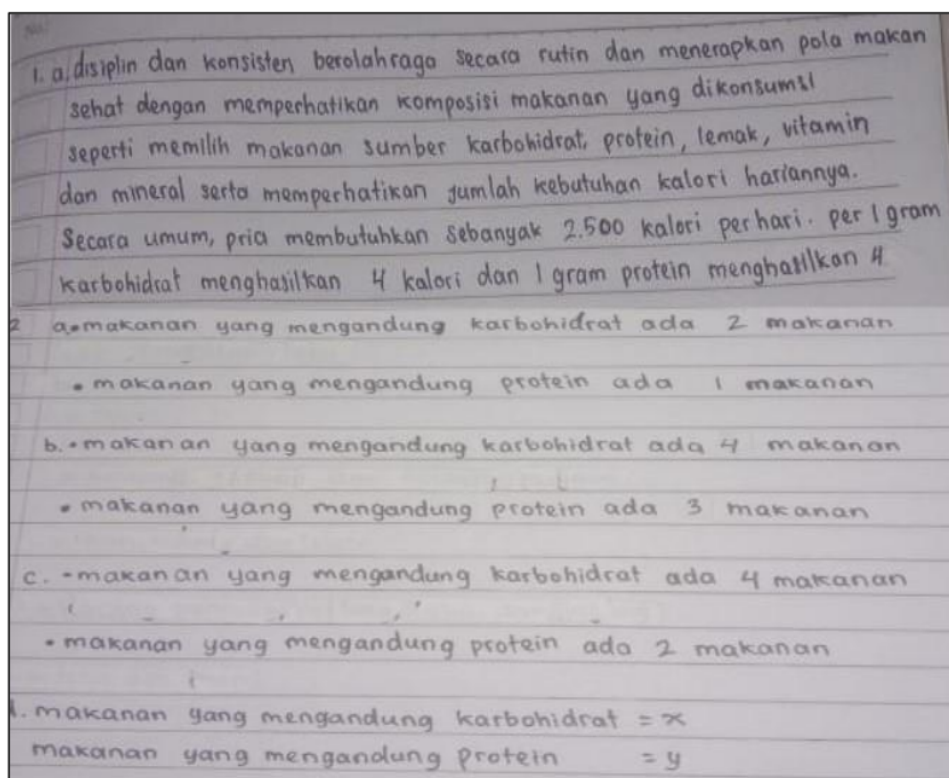 1. a. disiplin dan konsisten berolahraga secara rutin dan menerapkan pola makan
sehat dengan memperhatikan komposisi makanan yang dikonsumsi
seperti memilih makanan sumber karbohidrat, protein, lemak, vitamin
dan mineral serta memperhatikan jumlah kebutuhan kalori hariannya.
Secara umum, pria membutuhkan sebanyak 2.500 kalori perhari. per 1 gram
karbohidrat menghasilkan 4 kalori dan 1 gram protein menghasilkan 4
2 a. • makanan yang mengandung karbohidrat ada 2 makanan
• makanan yang mengandung protein ada 1 makanan
b. • makanan yang mengandung karbohidrat ada 4 makanan
• makanan yang mengandung protein ada 3 makanan
c. - makanan yang mengandung karbohidrat ada 4 makanan
• makanan yang mengandung protein ada 2 makanan
. makanan yang mengandung karbohidrat = x
makanan yang mengandung protein = y